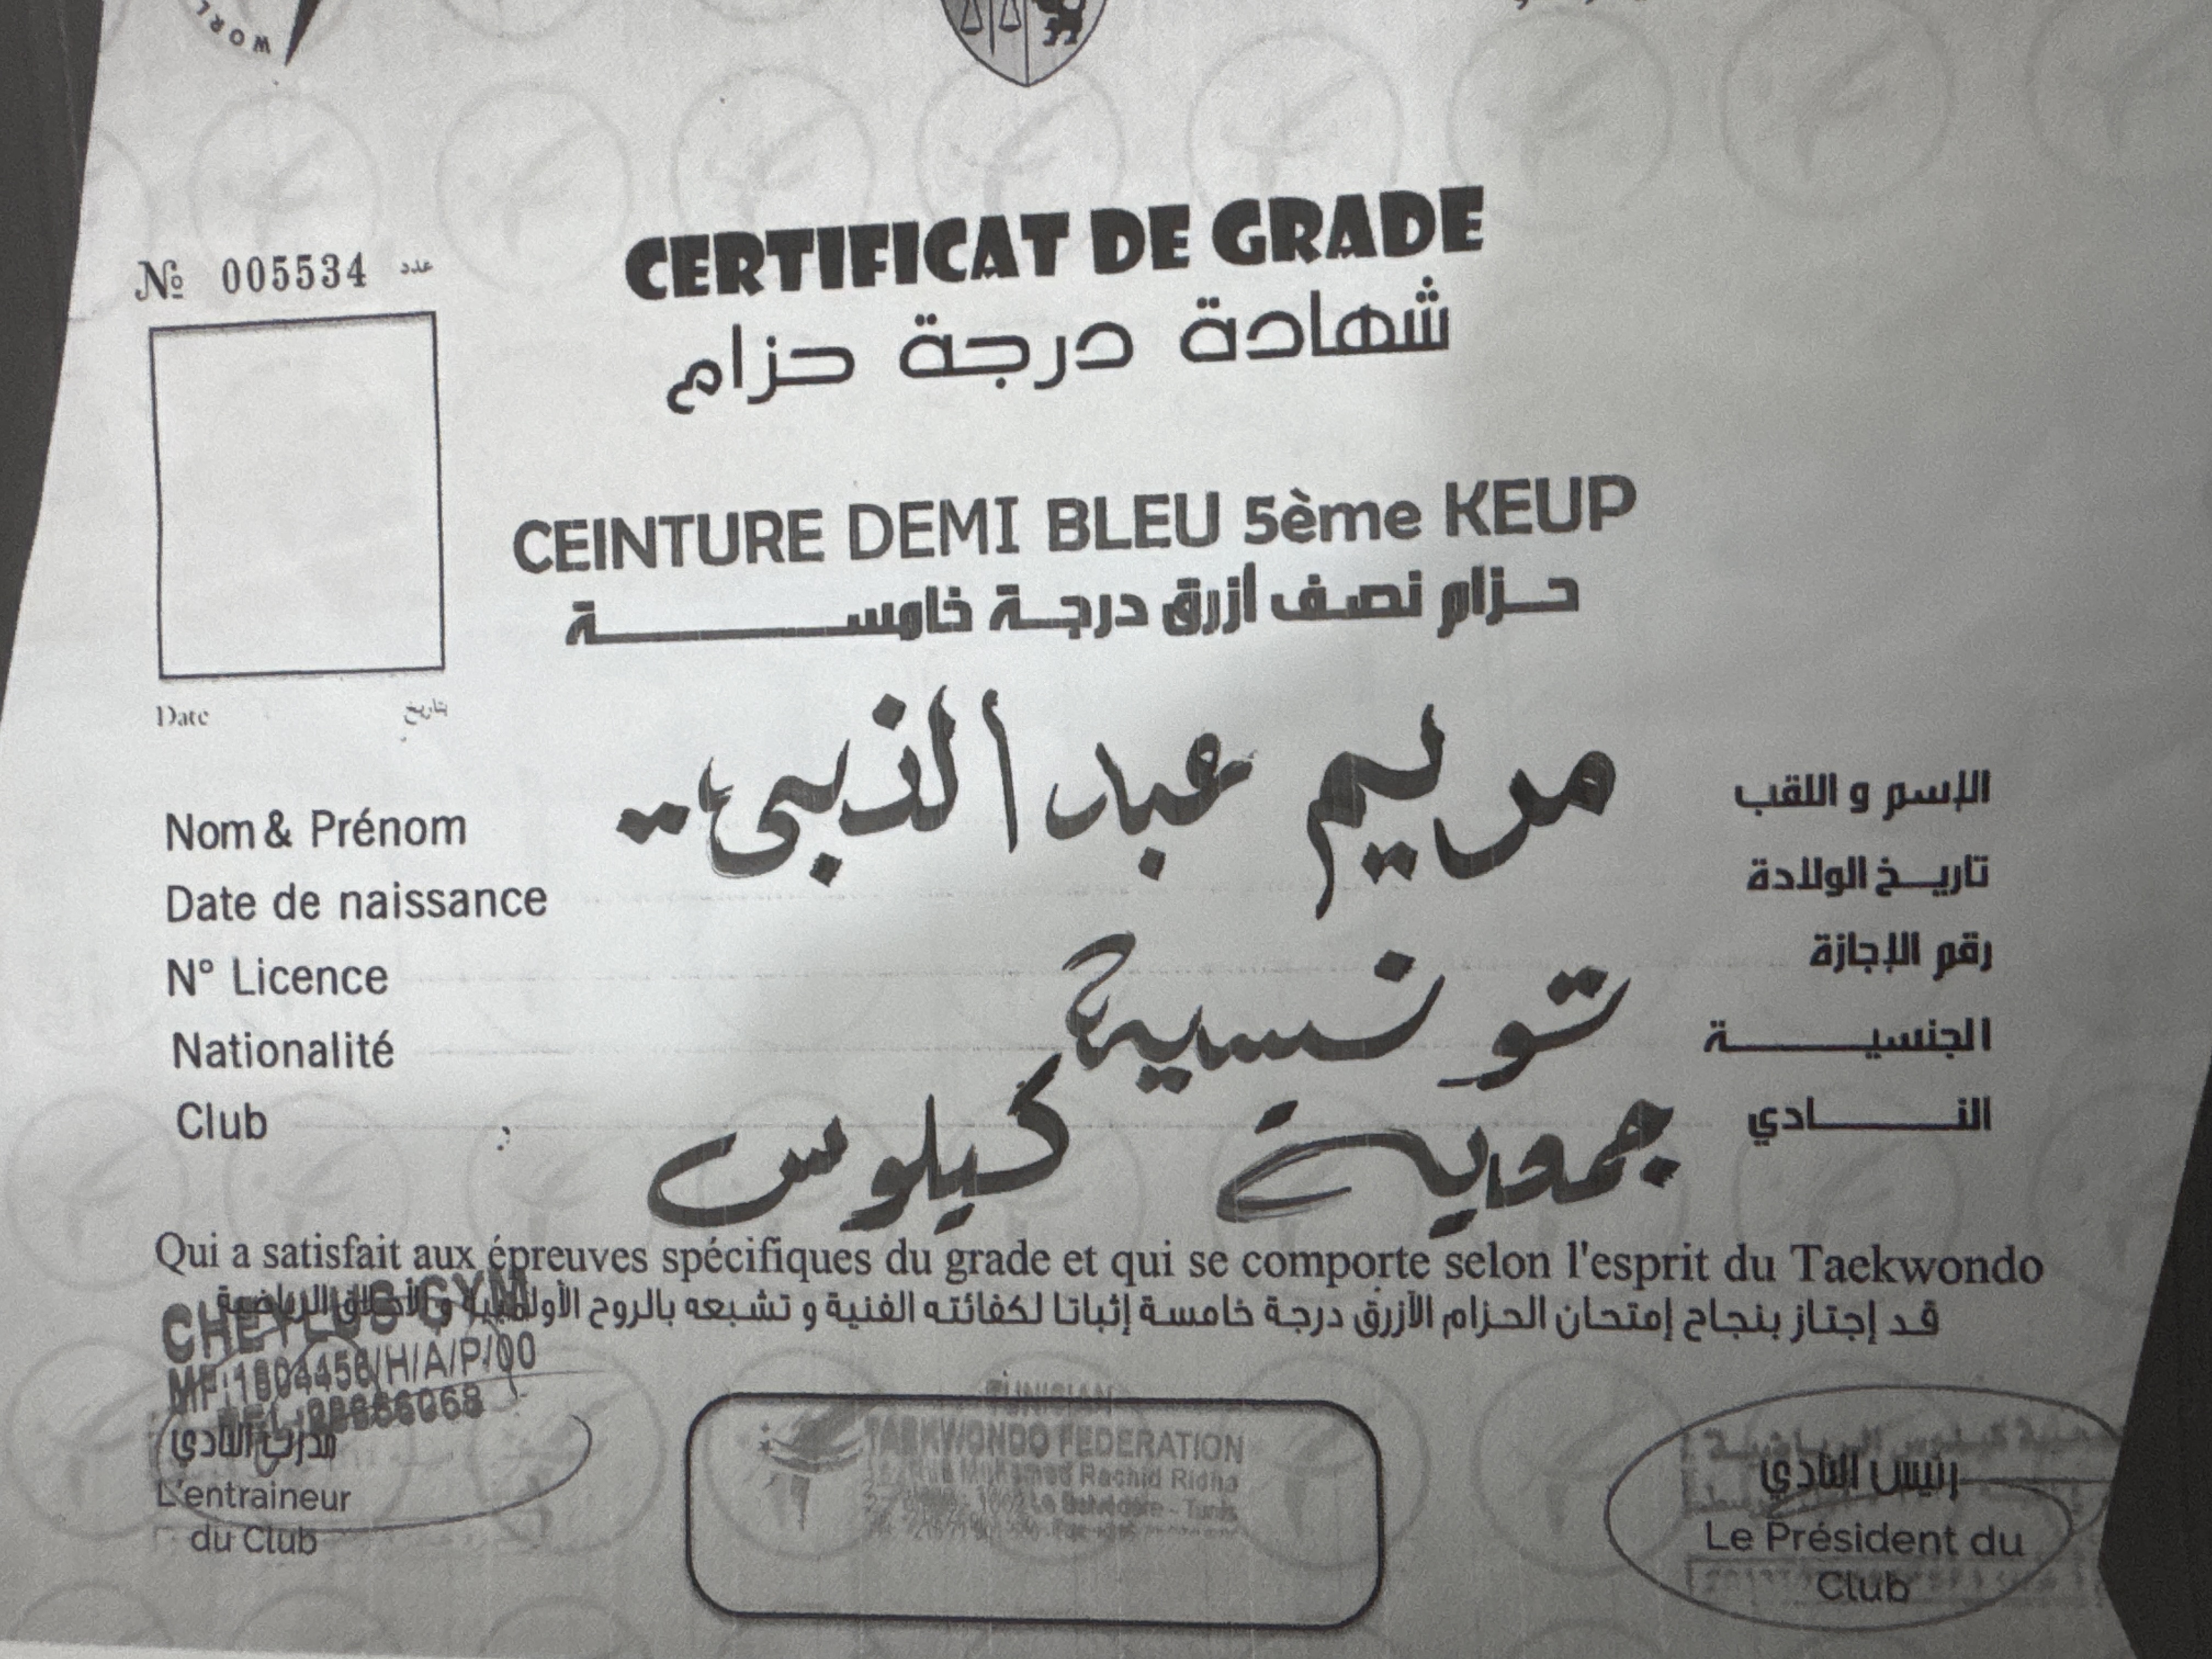 WORL
CERTIFICAT DE GRADE
№ 005534 عدد
شهادة درجة حزام
CEINTURE DEMI BLEU 5ème KEUP
حزام نصف أزرق درجة خامسة
Date بتاريخ
Nom & Prénom مريم عبد النبي الإسم و اللقب
Date de naissance تاريخ الولادة
N° Licence رقم الإجازة
Nationalité تونسية الجنسية
Club جمعية كيلوس النادي
Qui a satisfait aux épreuves spécifiques du grade et qui se comporte selon l'esprit du Taekwondo
قد إجتاز بنجاح إمتحان الحزام الأزرق درجة خامسة إثباتا لكفائته الفنية و تشبعه بالروح الأولمبية و الأخلاق الرياضية
CHEYLUS GYM
MF:1804456/H/A/P/00
مدرب النادي
L'entraineur
du Club
TUNISIAN
TAEKWONDO FEDERATION
Rue Mohamed Rachid Ridha
رئيس النادي
Le Président du
Club